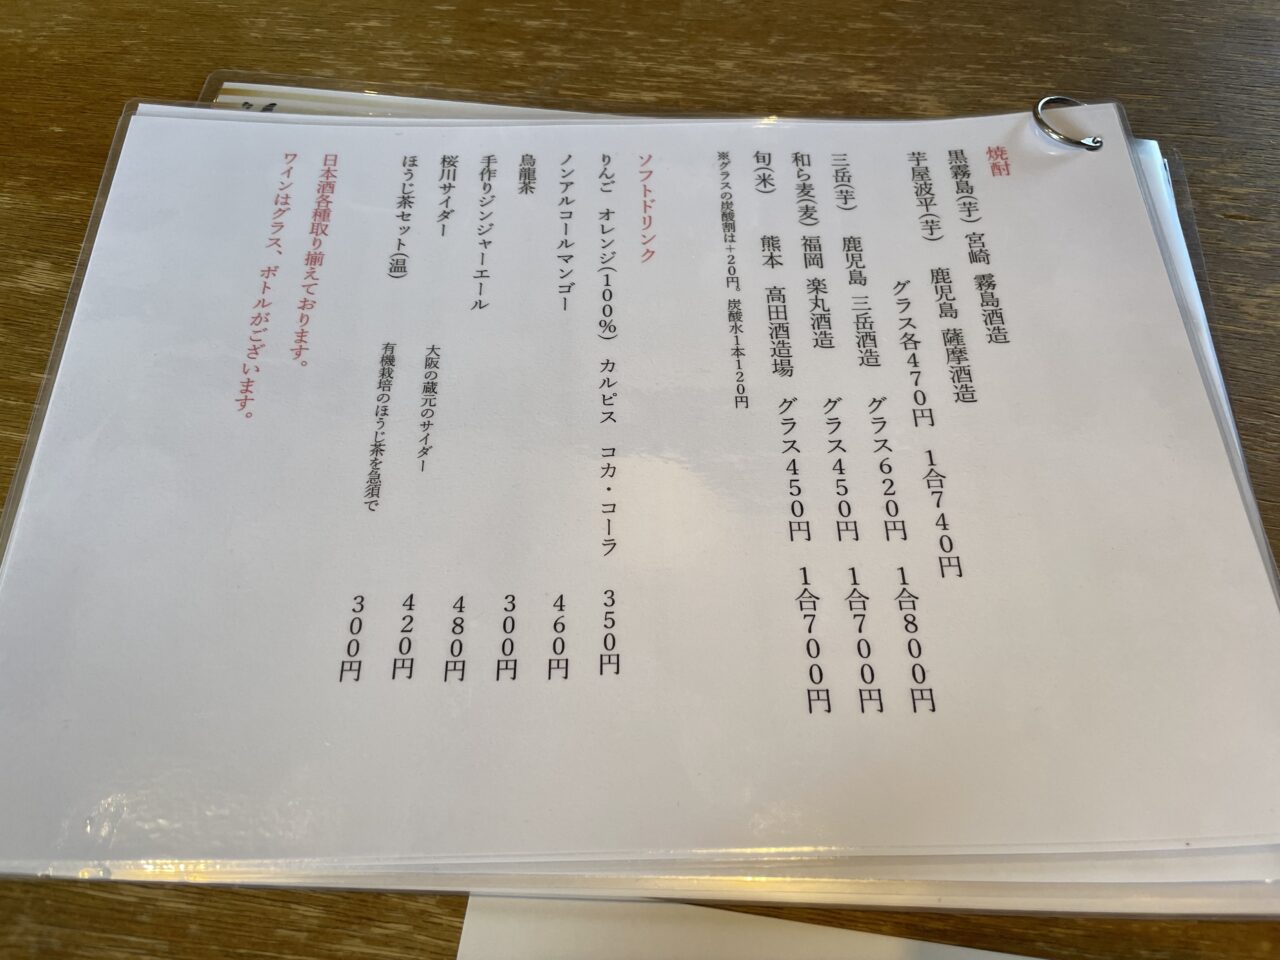 焼酎
黒霧島(芋) 宮崎 霧島酒造
芋屋波平(芋) 鹿児島 薩摩酒造
グラス各470円 1合740円
三岳(芋) 鹿児島 三岳酒造 グラス620円 1合800円
和ら麦(麦) 福岡 楽丸酒造 グラス450円 1合700円
旬(米) 熊本 高田酒造場 グラス450円 1合700円
※グラスの炭酸割は+20円。炭酸水1本120円
ソフトドリンク
りんご オレンジ(100%) カルピス コカ・コーラ 350円
ノンアルコールマンゴー 460円
烏龍茶 300円
手作りジンジャーエール 480円
桜川サイダー 大阪の蔵元のサイダー 420円
ほうじ茶セット(温) 有機栽培のほうじ茶を急須で 300円
日本酒各種取り揃えております。
ワインはグラス、ボトルがございます。